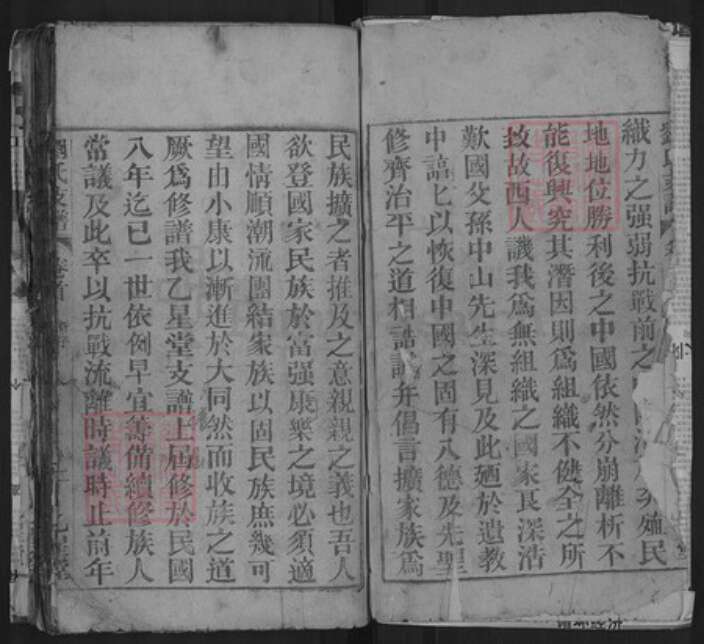 劉氏支譜
織力之强弱抗戰前之
民
地地位勝利後之中國依然分崩離析不
能復興究其潛因則爲組織不健全之所
致故西人譏我爲無組織之國家良深浩
歎國父孫中山先生深見及此廼於遺敎
中諄匕以恢復中國之固有八德及先聖
修齊治平之道相誥誡幷倡言擴家族爲
民族擴之者推及之意親親之義也吾人
欲登國家民族於富强康樂之境必須適
國情順潮流團結家族以固民族庶幾可
望由小康以漸進於大同然而收族之道
厥爲修譜我乙星堂支譜上屆修於民國
八年迄已一世依例早宜籌備續修族人
常議及此卒以抗戰流離時議時止前年
劉氏支譜 卷首
乙星堂